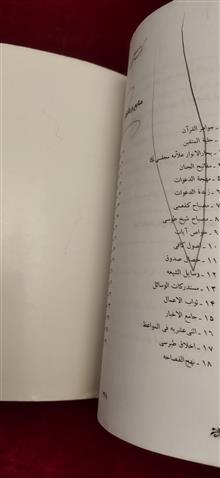 جواهر القرآن
حلیة المتقین
بحارالانوار علامه مجلسی
مفاتیح الجنان
۵ - مهجة الدعوات
۶ - زبدة الدعوات
۷ - مصباح کفعمی
۸ - مصباح شیخ طوسی
۹ - خواص آیات
۱۰ - اصول کافی
۱۱ - خصال صدوق
۱۲ - وسایل الشیعه
۱۳ - مستدرکات الوسائل
۱۴ - ثواب الاعمال
۱۵ - جامع الاخبار
۱۶ - اثنی عشریه فی المواعظ
۱۷ - اخلاق طبرسی
۱۸ - نهج الفصاحه